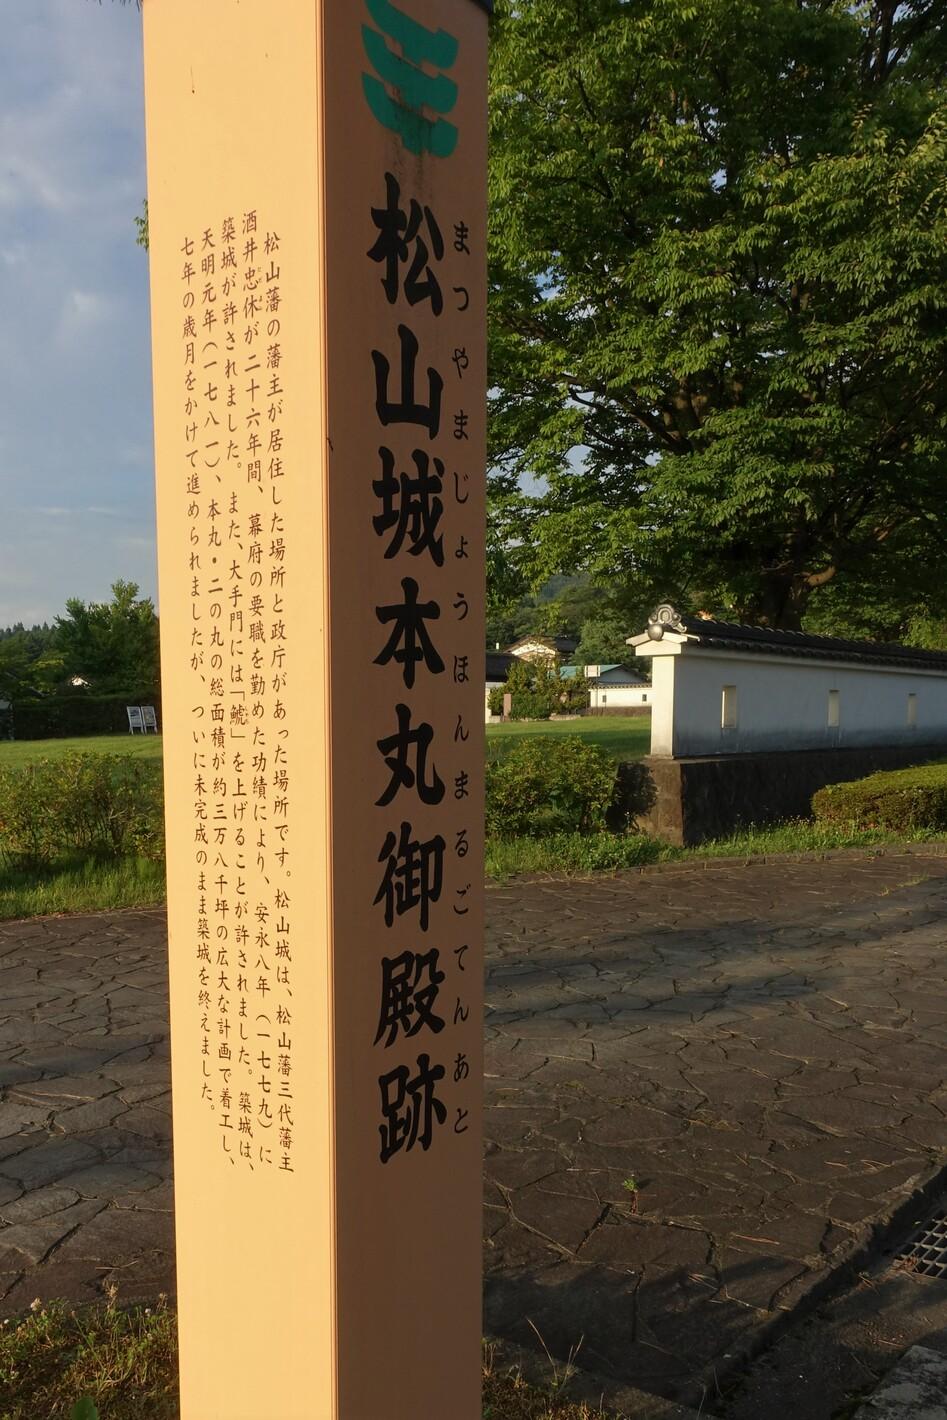 松山城本丸御殿跡
まつやまじょうほんまるごてんあと
松山藩の藩主が居住した場所と政庁があった場所です。松山城は、松山藩三代藩主
酒井忠休が二十六年間、幕府の要職を勤めた功績により、安永八年(一七七九)に
築城が許されました。また、大手門には「鯱」を上げることが許されました。築城は、
天明元年(一七八一)、本丸・二の丸の総面積が約三万八千坪の広大な計画で着工し、
七年の歳月をかけて進められましたが、ついに未完成のまま築城を終えました。